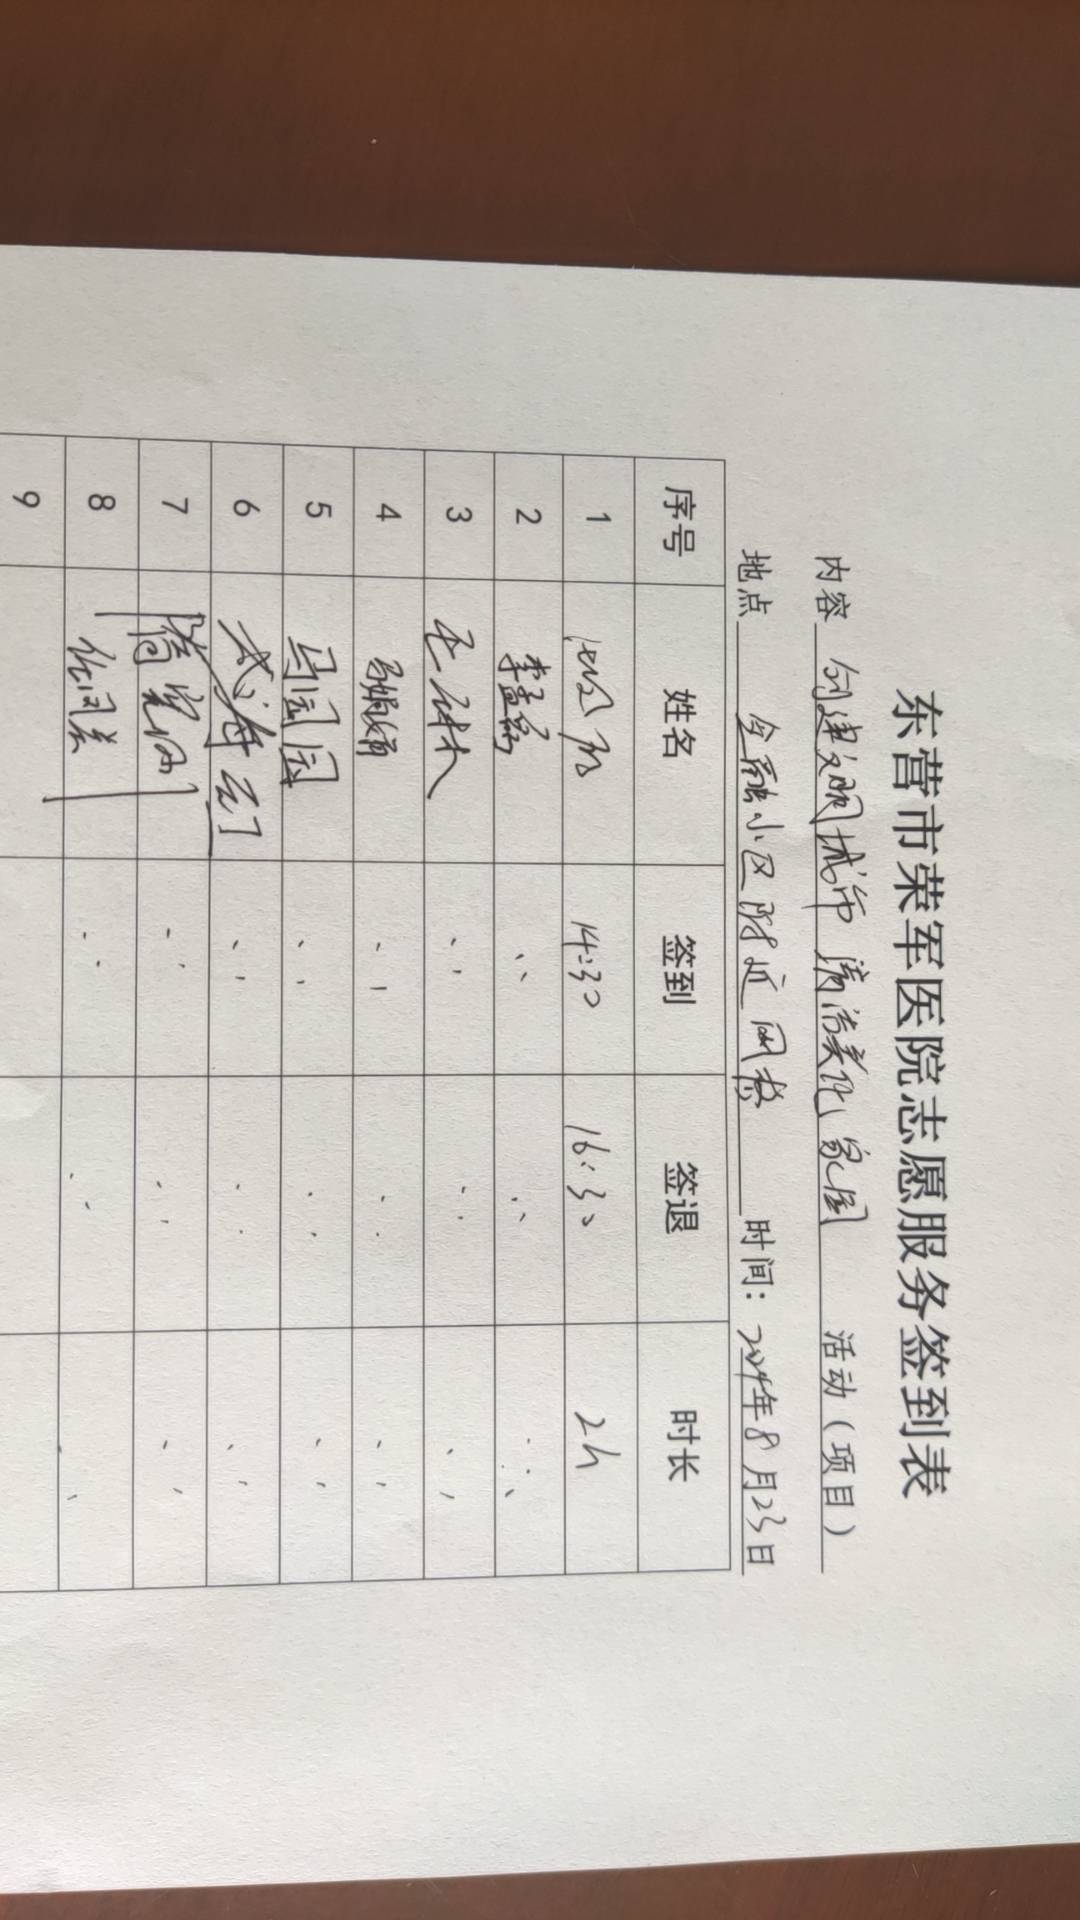 东营市荣军医院志愿服务签到表
内容 创建文明城市 清洁美化家园 活动（项目）
地点 金融小区附近网格 时间：2024年8月23日
序号 姓名 签到 签退 时长
1 14:30 16:30 2h
2 李孟嘉
3
4
5 马园园
6
7
8
9